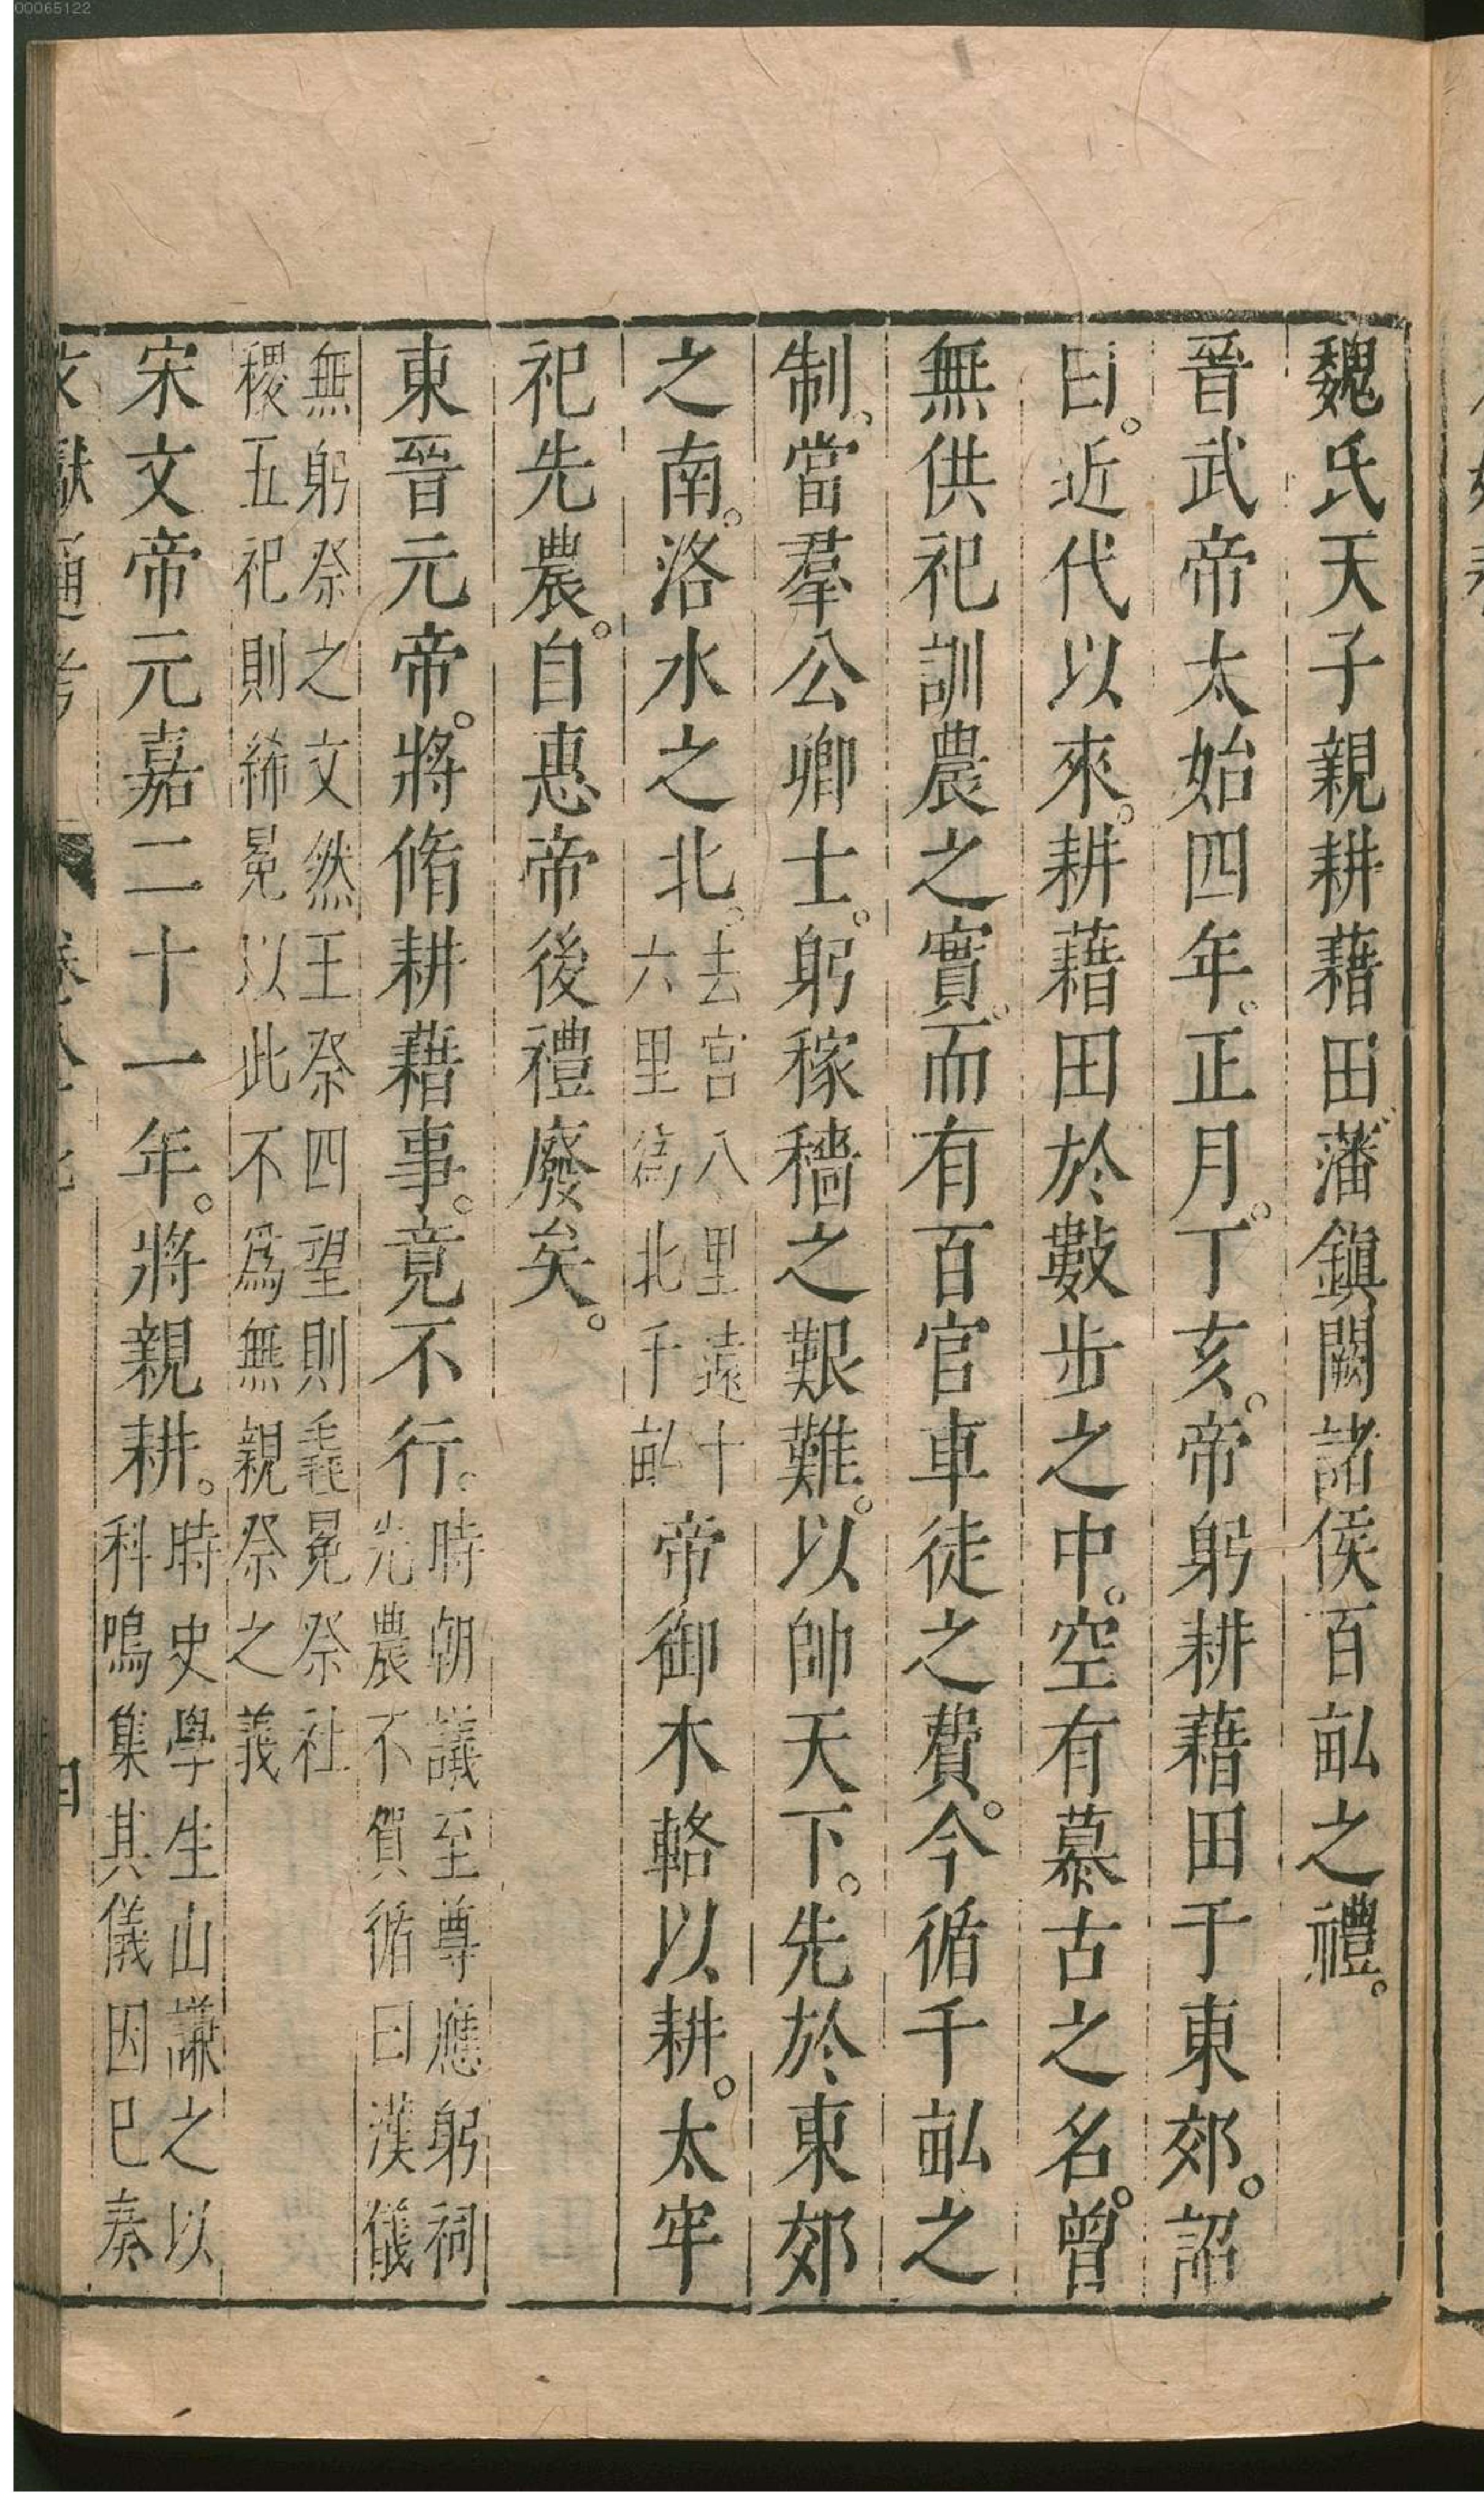 00065122
魏氏天子親耕藉田藩鎮闕諸侯百畝之禮。
晉武帝太始四年。正月。丁亥。帝躬耕藉田于東郊。詔
曰。近代以來。耕藉田於數步之中。空有慕古之名。曾
無供祀訓農之實。而有百官車徒之費。今循千畝之
制、當羣公卿士。躬稼穡之艱難。以帥天下。先於東郊
之南。洛水之北。
去宮八里遠十
六里為北千畝
帝御木輅以耕。太牢
祀先農。自惠帝後禮廢矣。
東晉元帝。將脩耕藉事。竟不行。
時朝議至尊應躬祠
先農不賀循曰漢儀
無躬祭之文然王祭四望則毳冕祭社
稷五祀則絺冕以此不爲無親祭之義
宋文帝元嘉二十一年。將親耕。
時史學生山謙之以
科鳴集其儀因已奏
文獻通考